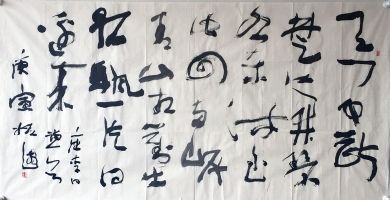 天門中斷
楚江開碧
水東流至
此回兩岸
青山相對出
孤帆一片日
邊來
唐李白
庚寅